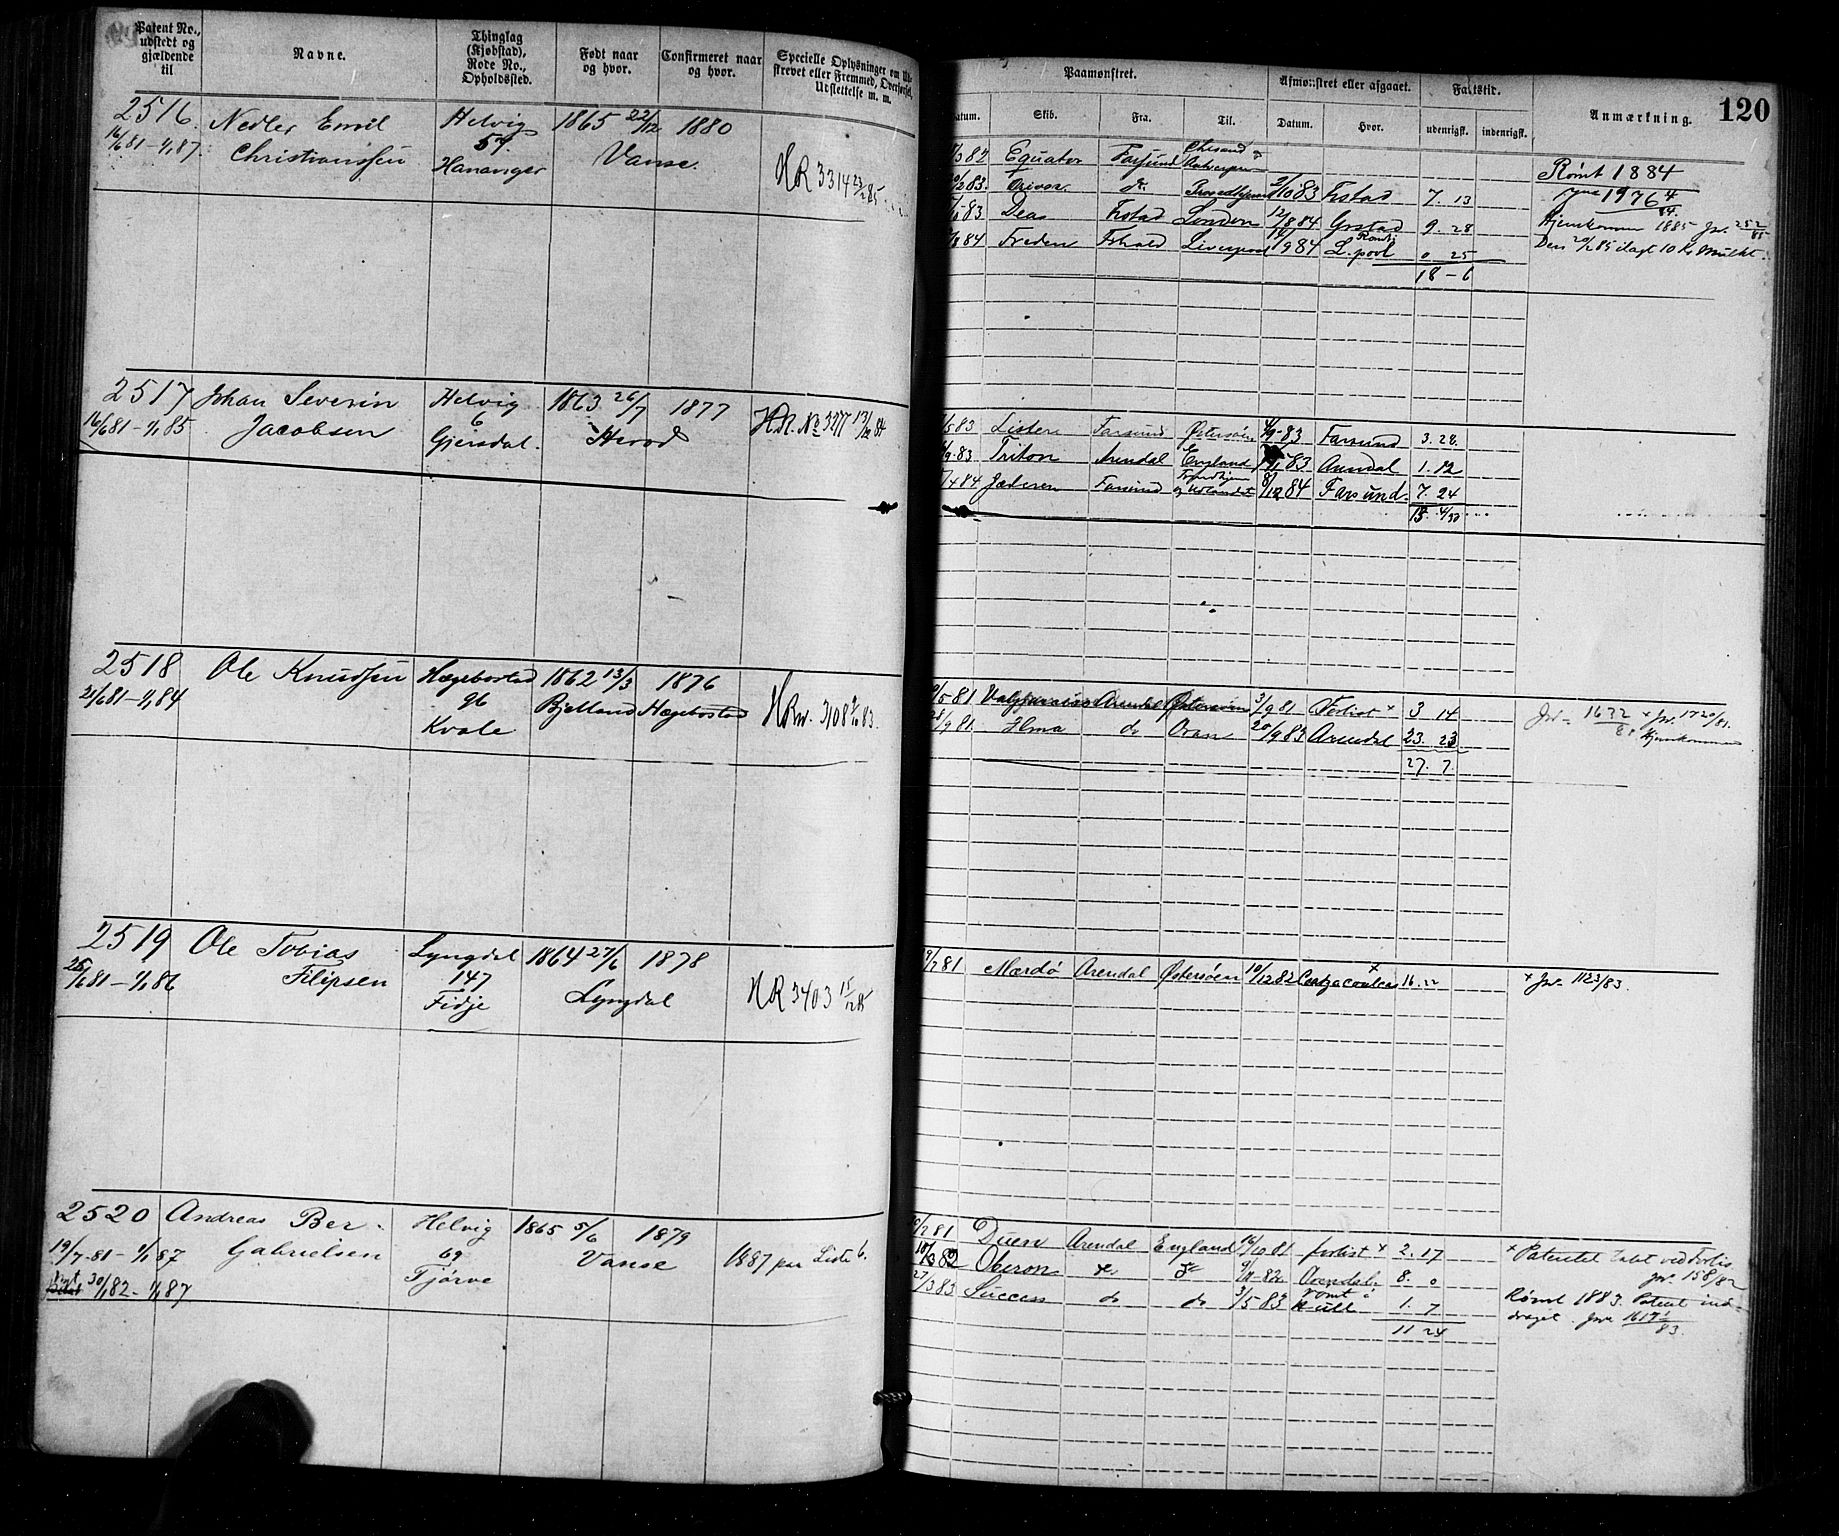 Patent No., udstedt og gjældende til
Navne.
Thinglag (Kjøbstad), Rode No., Opholdssted.
Født naar og hvor.
Confirmeret naar og hvor.
Specielle Oplysninger om
strevet eller Fremmed, Overførsel,
Udslettelse m. m.
2516. Nedler Emil Helvig 1865 22/12 1880
16/6 81 - 1/1 87. Christianssen 57 Vanse.
Hananger HR 3314 23/2 85
2517 Johan Severin Helvig 1863 26/7 1877 HR. No 3277 13/12 84
16/6 81 - 1/1 85 Jacobsen 6 Herod
Gjersdal.
2518 Ole Knudsen Hægebostad 1862 13/3 1876
21/6 81 - 1/1 84 96 Bjelland Hægebostad
Kvale
2519 Ole Tobias Lyngdal 1864 27/6 1878
28/6 81 - 1/1 86 Filipsen 147 Lyngdal HR 3403 15/12 85
Fidje
2520 Andreas Ber- Helvig 1865 5/6 1879
19/7 81 - 1/1 87 Gabrielsen 69 Vanse 1887 paa Liste 6.
30/1 82 - 1/1 87 Tjørve
120
Paamønstret.
Afmønstret eller afgaaet.
Fartstid.
Anmærkning.
Datum. Skib. Fra. Til. Datum. Hvor. udenrigsk. indenrigsk.
82 Equator Farsund Chrsand &
Antwerpen Rømt 1884
83. do. Trondhjem 2/10 83 Frstad 7. 13
83 Deas Frstad London 12/8 84 Grstad 9. 28 Hjemkommen 1885
84 Freden Frhald Liverpool 84 L.pool 0 25 Den 20/2 85 ilagt 10 Kr Mulkt.
18 - 6
83 Lister Farsund Østersøen 83 Farsund 3. 28.
9. 83 Triton Arendal England 83 Arendal 1. 12
4 84 Jæderen Farsund Trondhjem
og Udlandet 8/12 84 Farsund. 7. 24
5 81 Arendal Østersøen 3/9 81 Forlist × 3 14
9 81. Ilma do Oran 20/9 83 Arendal 23. 23 Hjemkommen
27. 7
7 81 Mærdø Arendal Østersøen 10/12 82 16. × Jr. 1123/83.
7 81 Duen Arendal England 10 81 forlist × 2. 17 × Patentet tabt ved Forlis.
Jr. 158/82
82 Oberon do. do 82 Arendal 8. 0
27/3 83 Success do do 3/5 83 rømt i
Hull 1. 7 Rømt 1883. Patent ind-
draget.
11 24